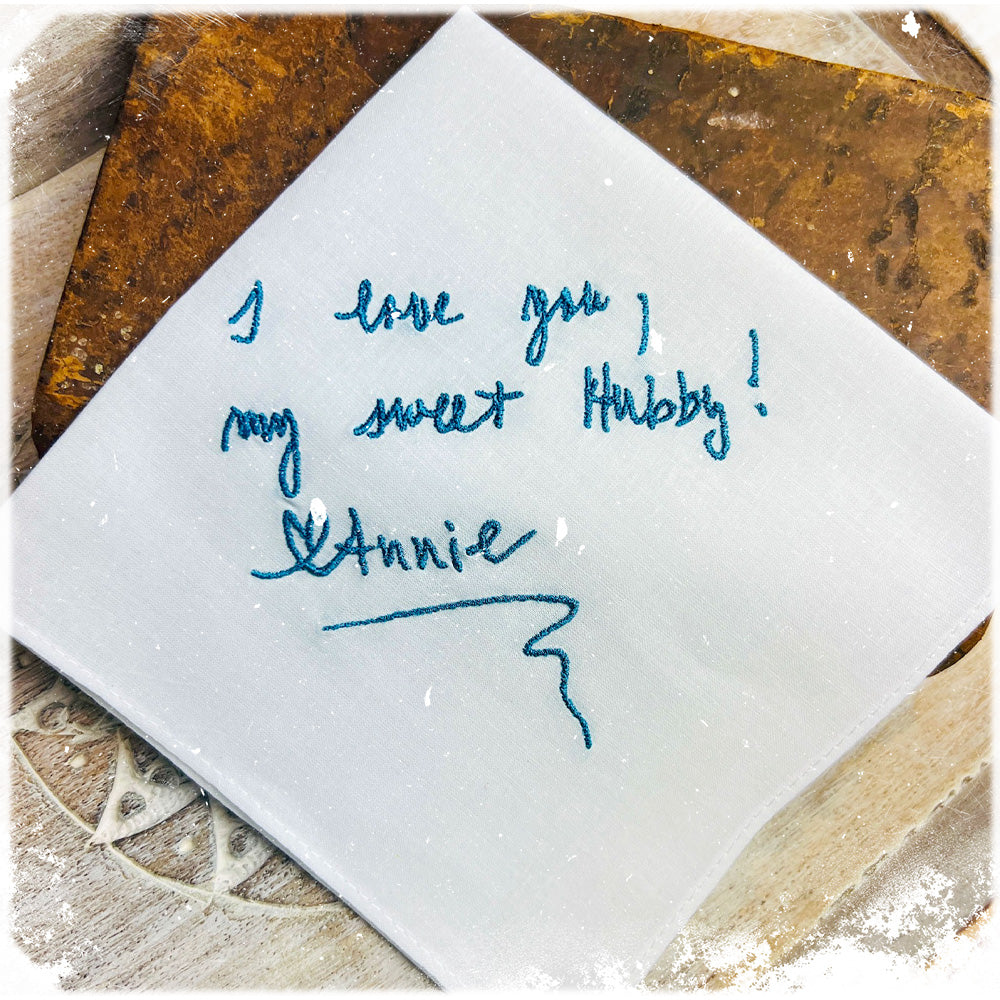 I love you,
my sweet Hubby!
♡Annie